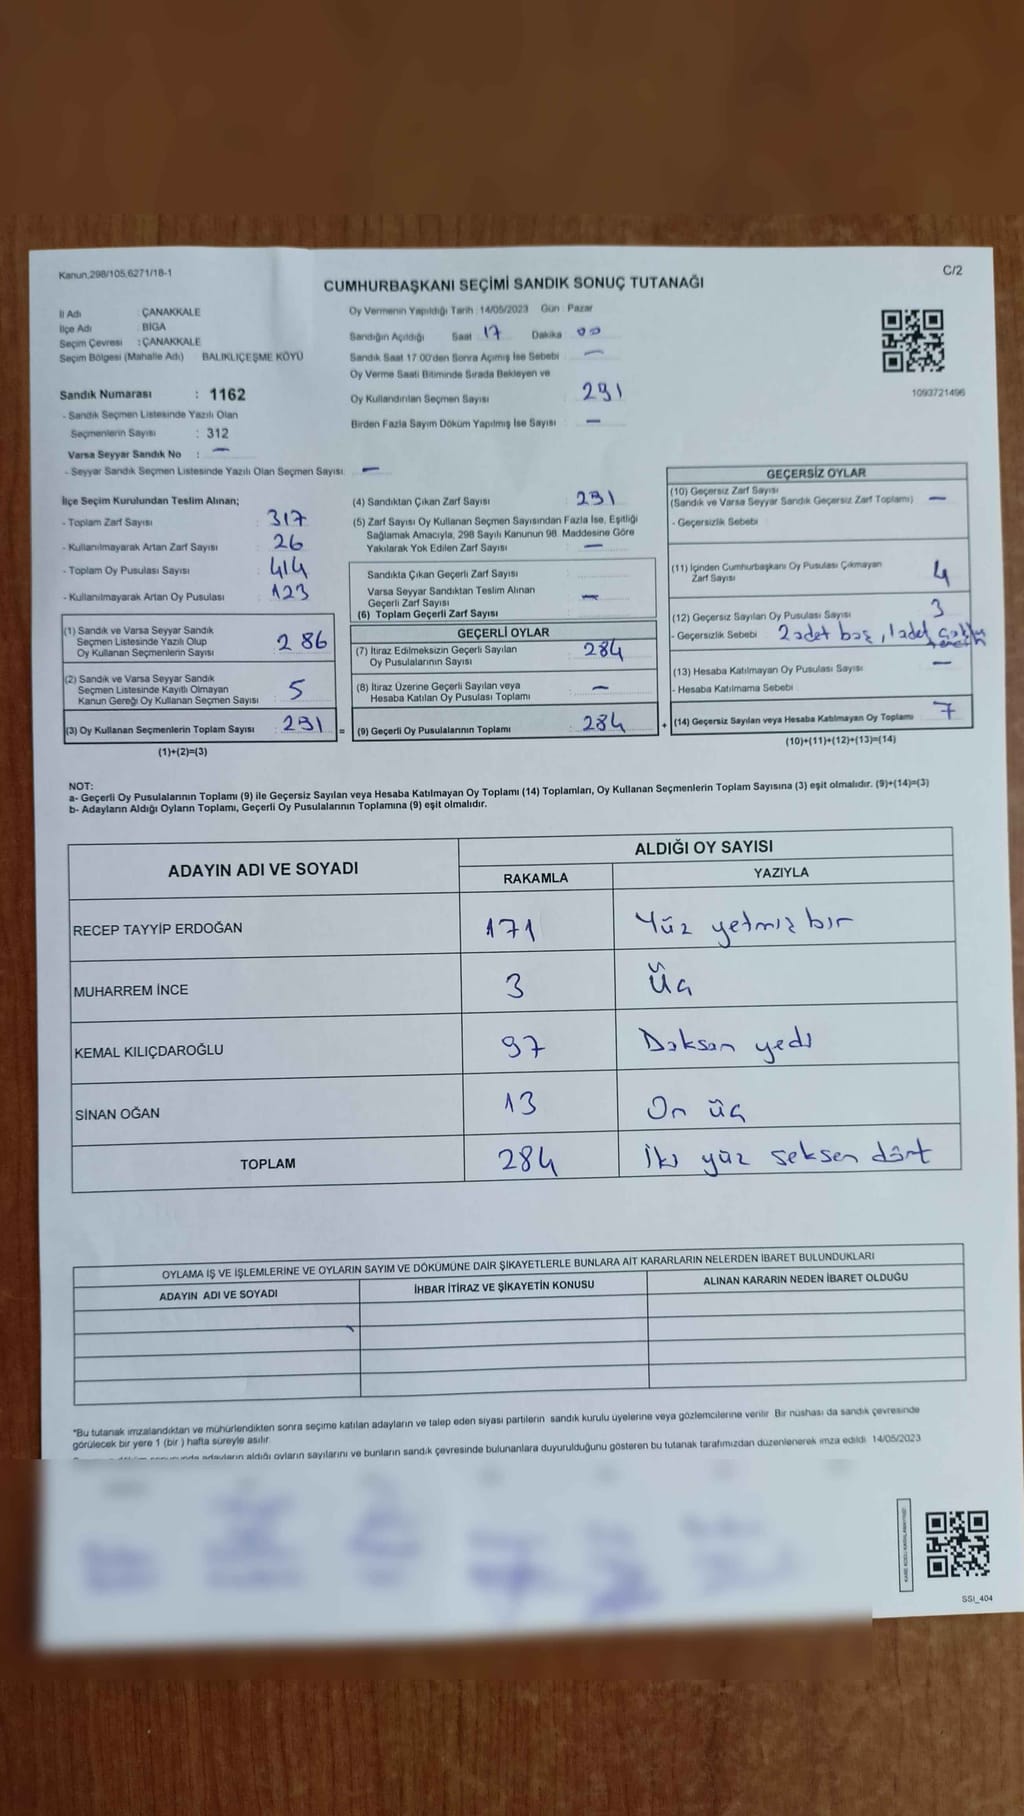 Kanun,298/105,6271/18-1
C/2
CUMHURBAŞKANI SEÇİMİ SANDIK SONUÇ TUTANAĞI
İl Adı : ÇANAKKALE
İlçe Adı : BİGA
Seçim Çevresi : ÇANAKKALE
Seçim Bölgesi (Mahalle Adı) BALIKLIÇEŞME KÖYÜ
Sandık Numarası : 1162
- Sandık Seçmen Listesinde Yazılı Olan
Seçmenlerin Sayısı : 312
Varsa Seyyar Sandık No : —
- Seyyar Sandık Seçmen Listesinde Yazılı Olan Seçmen Sayısı: —
Oy Vermenin Yapıldığı Tarih : 14/05/2023 Gün : Pazar
Sandığın Açıldığı Saat 17 Dakika 00
Sandık Saat 17:00'den Sonra Açımış İse Sebebi —
Oy Verme Saati Bitiminde Sırada Bekleyen ve
Oy Kullandırılan Seçmen Sayısı 291
Birden Fazla Sayım Döküm Yapılmış İse Sayısı —
1093721496
İlçe Seçim Kurulundan Teslim Alınan;
- Toplam Zarf Sayısı : 317
- Kullanılmayarak Artan Zarf Sayısı : 26
- Toplam Oy Pusulası Sayısı : 414
- Kullanılmayarak Artan Oy Pusulası : 123
(1) Sandık ve Varsa Seyyar Sandık
Seçmen Listesinde Yazılı Olup
Oy Kullanan Seçmenlerin Sayısı : 286
(2) Sandık ve Varsa Seyyar Sandık
Seçmen Listesinde Kayıtlı Olmayan
Kanun Gereği Oy Kullanan Seçmen Sayısı : 5
(3) Oy Kullanan Seçmenlerin Toplam Sayısı : 291 =
(1)+(2)=(3)
(4) Sandıktan Çıkan Zarf Sayısı : 291
(5) Zarf Sayısı Oy Kullanan Seçmen Sayısından Fazla İse, Eşitliği
Sağlamak Amacıyla, 298 Sayılı Kanunun 98. Maddesine Göre
Yakılarak Yok Edilen Zarf Sayısı : —
Sandıkta Çıkan Geçerli Zarf Sayısı :
Varsa Seyyar Sandıktan Teslim Alınan
Geçerli Zarf Sayısı : —
(6) Toplam Geçerli Zarf Sayısı
GEÇERLİ OYLAR
(7) İtiraz Edilmeksizin Geçerli Sayılan
Oy Pusulalarının Sayısı : 284
(8) İtiraz Üzerine Geçerli Sayılan veya
Hesaba Katılan Oy Pusulası Toplamı : —
(9) Geçerli Oy Pusulalarının Toplamı : 284 +
GEÇERSİZ OYLAR
(10) Geçersiz Zarf Sayısı
(Sandık ve Varsa Seyyar Sandık Geçersiz Zarf Toplamı) —
- Geçersizlik Sebebi
(11) İçinden Cumhurbaşkanı Oy Pusulası Çıkmayan
Zarf Sayısı 4
(12) Geçersiz Sayılan Oy Pusulası Sayısı 3
- Geçersizlik Sebebi 2 adet boş, 1 adet
(13) Hesaba Katılmayan Oy Pusulası Sayısı —
- Hesaba Katılmama Sebebi
(14) Geçersiz Sayılan veya Hesaba Katılmayan Oy Toplamı 7
(10)+(11)+(12)+(13)=(14)
NOT:
a- Geçerli Oy Pusulalarının Toplamı (9) ile Geçersiz Sayılan veya Hesaba Katılmayan Oy Toplamı (14) Toplamları, Oy Kullanan Seçmenlerin Toplam Sayısına (3) eşit olmalıdır. (9)+(14)=(3)
b- Adayların Aldığı Oyların Toplamı, Geçerli Oy Pusulalarının Toplamına (9) eşit olmalıdır.
ADAYIN ADI VE SOYADI
ALDIĞI OY SAYISI
RAKAMLA YAZIYLA
RECEP TAYYİP ERDOĞAN 171 Yüz yetmiş bir
MUHARREM İNCE 3 Üç
KEMAL KILIÇDAROĞLU 97 Doksan yedi
SİNAN OĞAN 13 On üç
TOPLAM 284 İki yüz seksen dört
OYLAMA İŞ VE İŞLEMLERİNE VE OYLARIN SAYIM VE DÖKÜMÜNE DAİR ŞİKAYETLERLE BUNLARA AİT KARARLARIN NELERDEN İBARET BULUNDUKLARI
ADAYIN ADI VE SOYADI İHBAR İTİRAZ VE ŞİKAYETİN KONUSU ALINAN KARARIN NEDEN İBARET OLDUĞU
*Bu tutanak imzalandıktan ve mühürlendikten sonra seçime katılan adayların ve talep eden siyasi partilerin sandık kurulu üyelerine veya gözlemcilerine verilir. Bir nüshası da sandık çevresinde
görülecek bir yere 1 (bir ) hafta süreyle asılır.
adayların aldığı oyların sayılarını ve bunların sandık çevresinde bulunanlara duyurulduğunu gösteren bu tutanak tarafımızdan düzenlenerek imza edildi. 14/05/2023
SSI_404